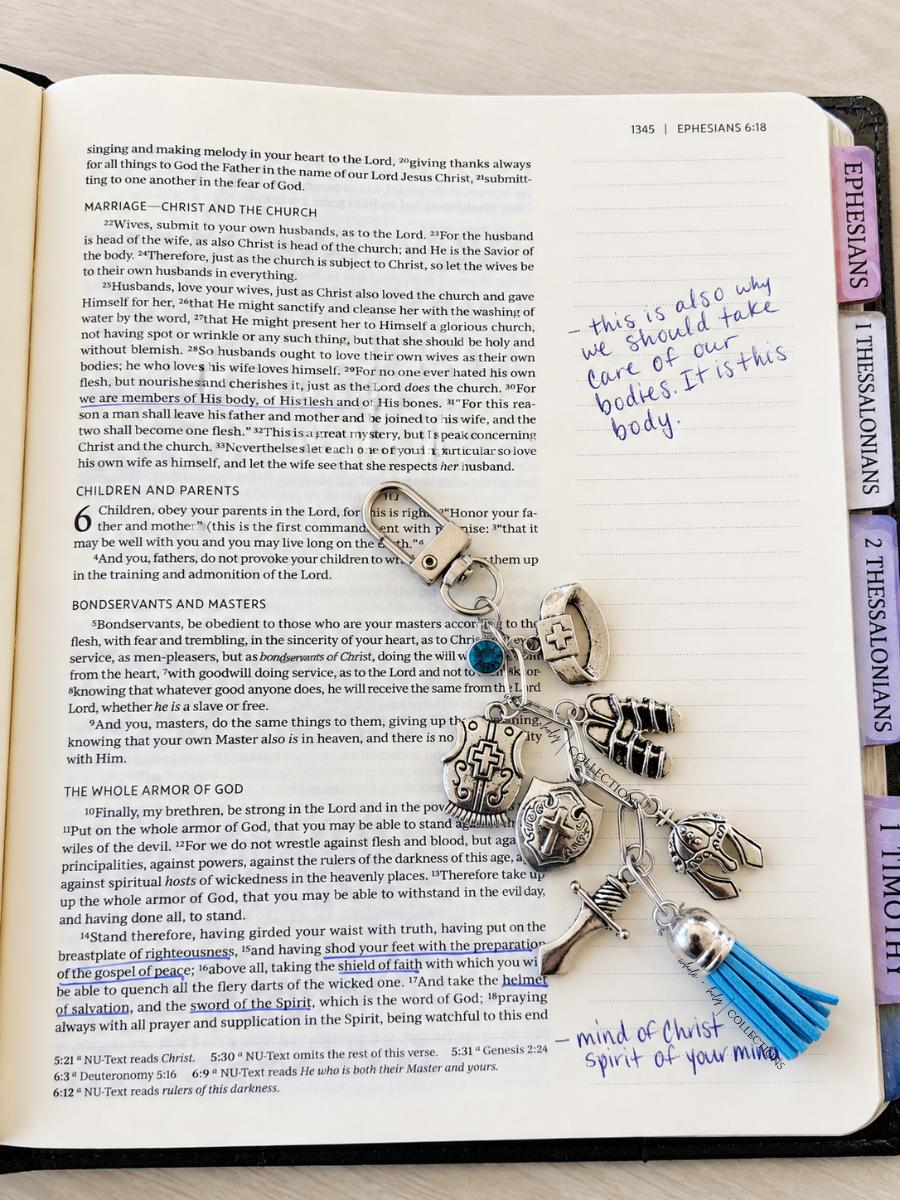 1345 | EPHESIANS 6:18
singing and making melody in your heart to the Lord, 20giving thanks always
for all things to God the Father in the name of our Lord Jesus Christ, 21submit-
ting to one another in the fear of God.
MARRIAGE—CHRIST AND THE CHURCH
22Wives, submit to your own husbands, as to the Lord. 23For the husband
is head of the wife, as also Christ is head of the church; and He is the Savior of
the body. 24Therefore, just as the church is subject to Christ, so let the wives be
to their own husbands in everything.
25Husbands, love your wives, just as Christ also loved the church and gave
Himself for her, 26that He might sanctify and cleanse her with the washing of
water by the word, 27that He might present her to Himself a glorious church,
not having spot or wrinkle or any such thing, but that she should be holy and
without blemish. 28So husbands ought to love their own wives as their own
bodies; he who loves his wife loves himself. 29For no one ever hated his own
flesh, but nourishes and cherishes it, just as the Lord does the church. 30For
we are members of His body, of His flesh and of His bones. 31"For this rea-
son a man shall leave his father and mother and be joined to his wife, and the
two shall become one flesh." 32This is a great mystery, but I speak concerning
Christ and the church. 33Nevertheless let each one of you in particular so love
his own wife as himself, and let the wife see that she respects her husband.
CHILDREN AND PARENTS
6 Children, obey your parents in the Lord, for this is right. 2"Honor your fa-
ther and mother" (this is the first commandment with promise: 3"that it
may be well with you and you may live long on the earth."a
4And you, fathers, do not provoke your children to them up
in the training and admonition of the Lord.
BONDSERVANTS AND MASTERS
5Bondservants, be obedient to those who are your masters according to the
flesh, with fear and trembling, in the sincerity of your heart, as to
service, as men-pleasers, but as bondservants of Christ, doing the will
from the heart, 7with goodwill doing service, as to the Lord and not to
8knowing that whatever good anyone does, he will receive the same from the Lord
Lord, whether he is a slave or free.
9And you, masters, do the same things to them, giving up
knowing that your own Master also is in heaven, and there is no
with Him.
THE WHOLE ARMOR OF GOD
10Finally, my brethren, be strong in the Lord and in the
11Put on the whole armor of God, that you may be able to stand
wiles of the devil. 12For we do not wrestle against flesh and blood, but
principalities, against powers, against the rulers of the darkness of this age,
against spiritual hosts of wickedness in the heavenly places. 13Therefore take up
up the whole armor of God, that you may be able to withstand in the evil day,
and having done all, to stand.
14Stand therefore, having girded your waist with truth, having put on the
breastplate of righteousness, 15and having shod your feet with the preparation
of the gospel of peace; 16above all, taking the shield of faith with which you
be able to quench all the flery darts of the wicked one. 17And take the helmet
of salvation, and the sword of the Spirit, which is the word of God; 18praying
always with all prayer and supplication in the Spirit, being watchful to this end
5:21 a NU-Text reads Christ. 5:30 a NU-Text omits the rest of this verse. 5:31 a Genesis 2:24
6:3 a Deuteronomy 5:16 6:9 a NU-Text reads He who is both their Master and yours.
6:12 a NU-Text reads rulers of this darkness.
- this is also why
we should take
care of our
bodies. It is this
body.
- mind of Christ
spirit of your mind
EPHESIANS
1 THESSALONIANS
2 THESSALONIANS
1 TIMOTHY
holy COLLECTIONS
whole . holy COLLECTIONS